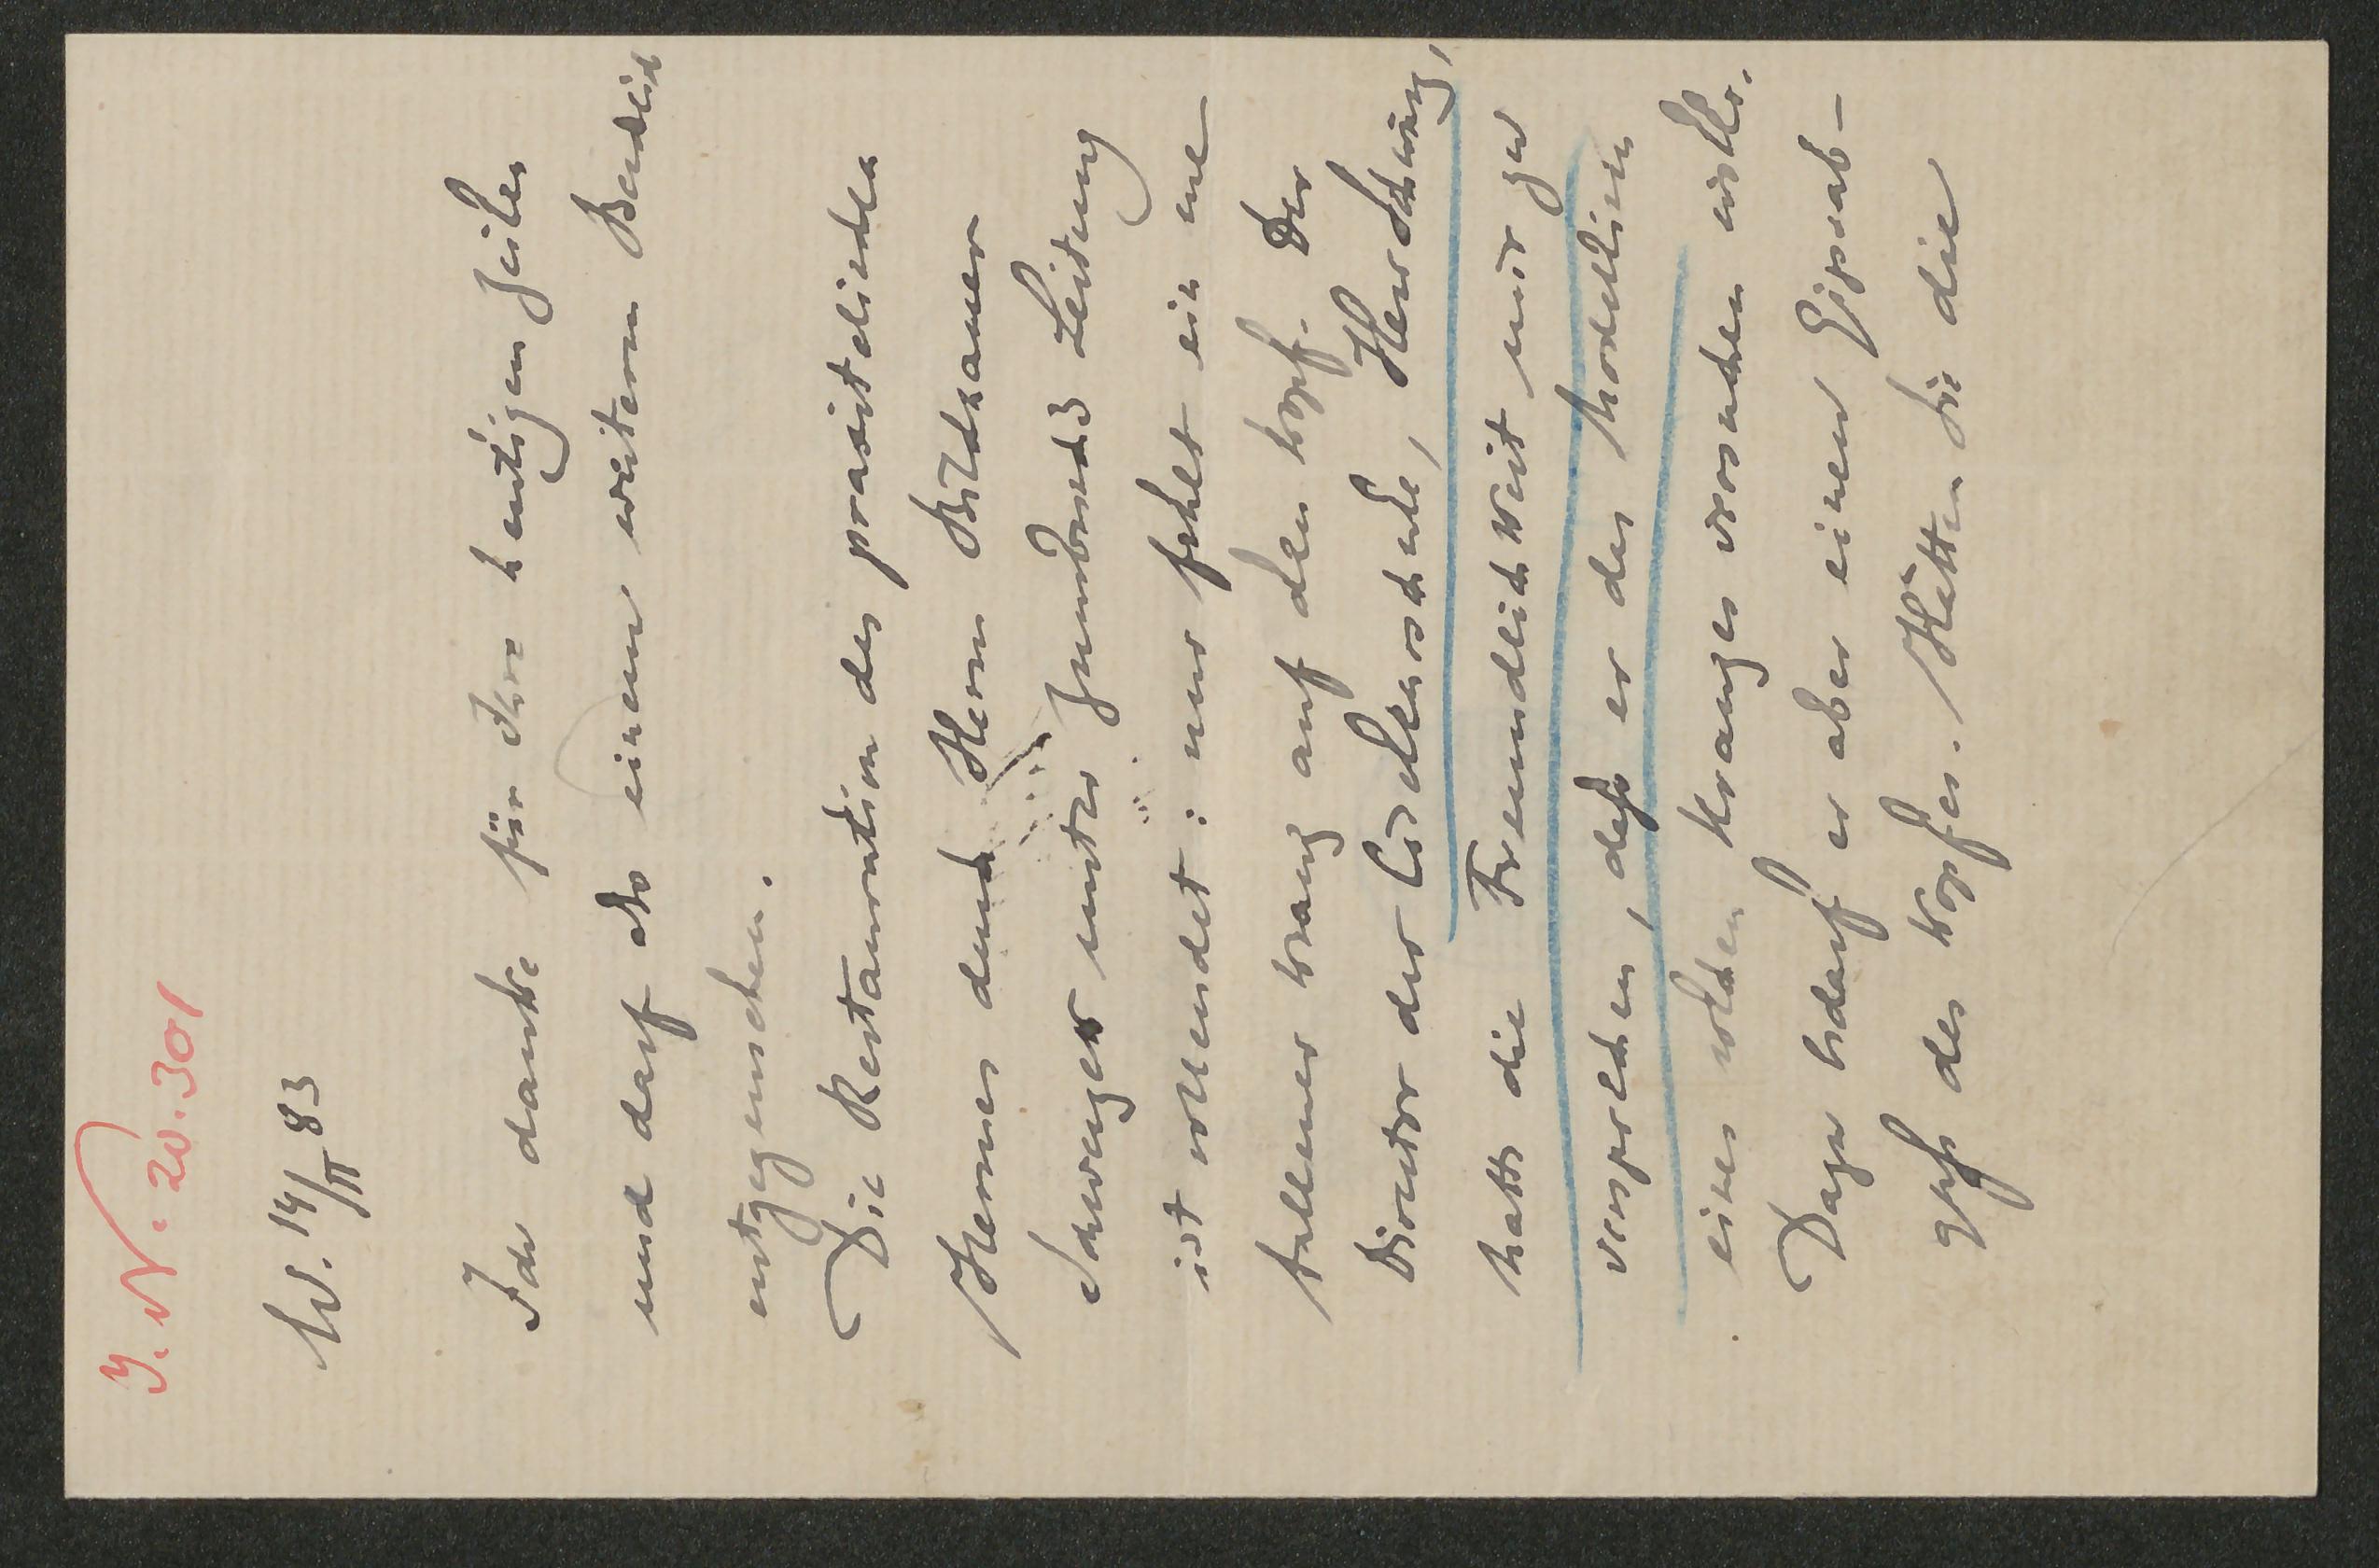 J. N. 20.301
W. 14/II 83
Ich danke für Ihre heutigen Zeilen
und darf also einem weitern Bericht
entgegensehen.
Die Restauration des praxitelischen
Hermes durch Herrn Bildhauer
Schwerzek unter Zumbuschs Leitung
ist vollendet: nur fehlt ein
kranz auf den Kopf. Der
Director der Ciselierschule, Herr Schwartz,
hatte die Freundlichkeit mir zu
versprechen, daß er das Modellieren
eines solchen Kranzes versuchen wolle.
Dazu bedarf er aber einen Gipsab-
guß des Kopfes. Hätten Sie die